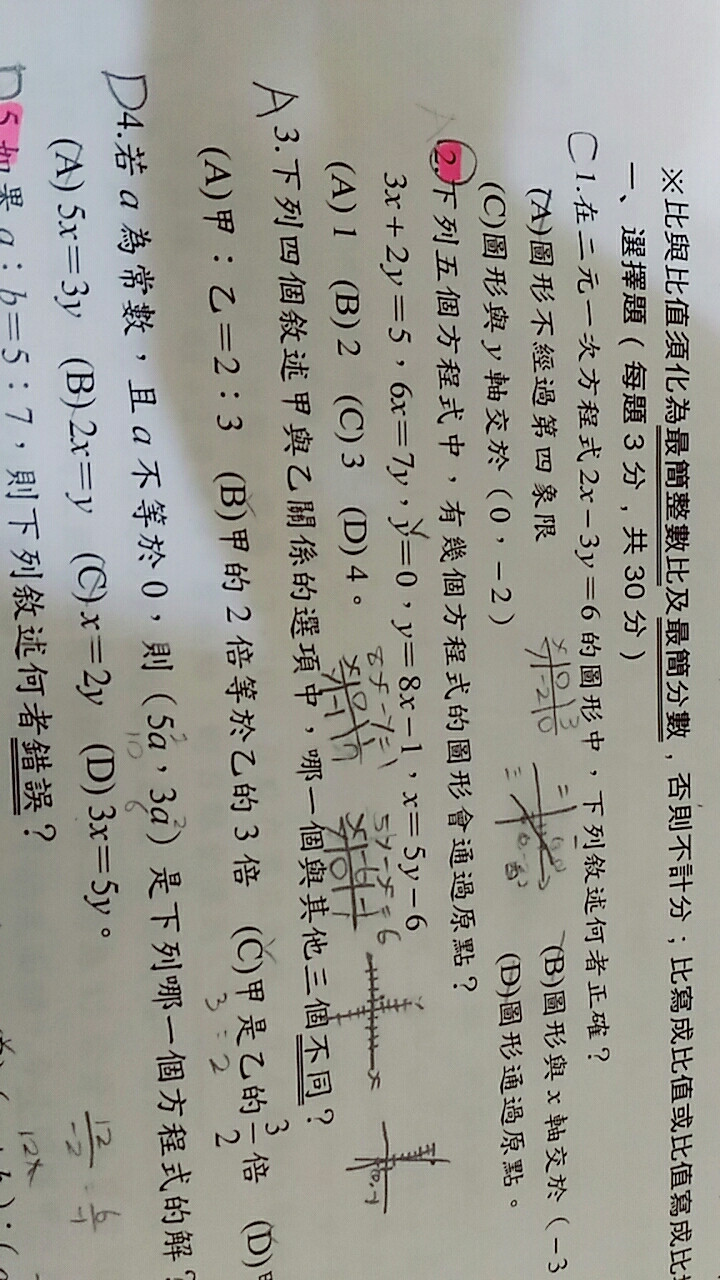 ※比與比值須化為最簡整數比及最簡分數，否則不計分；比寫成比值或比值寫成比
一、選擇題（每題3分，共30分）
C 1.在二元一次方程式2x−3y=6的圖形中，下列敘述何者正確？
(A)圖形不經過第四象限 (B)圖形與x軸交於（−3
(C)圖形與y軸交於（0，−2） (D)圖形通過原點。
2.下列五個方程式中，有幾個方程式的圖形會通過原點？
3x+2y=5，6x=7y，y=0，y=8x−1，x=5y−6
(A)1 (B)2 (C)3 (D)4。
A 3.下列四個敘述甲與乙關係的選項中，哪一個與其他三個不同？
(A)甲：乙=2：3 (B)甲的2倍等於乙的3倍 (C)甲是乙的3/2倍 (D)甲
3:2
D 4.若a為常數，且a不等於0，則（5a，3a）是下列哪一個方程式的解？
10 6
(A)5x=3y (B)2x=y (C)x=2y (D)3x=5y。
D 5.如果a：b=5：7，則下列敘述何者錯誤？